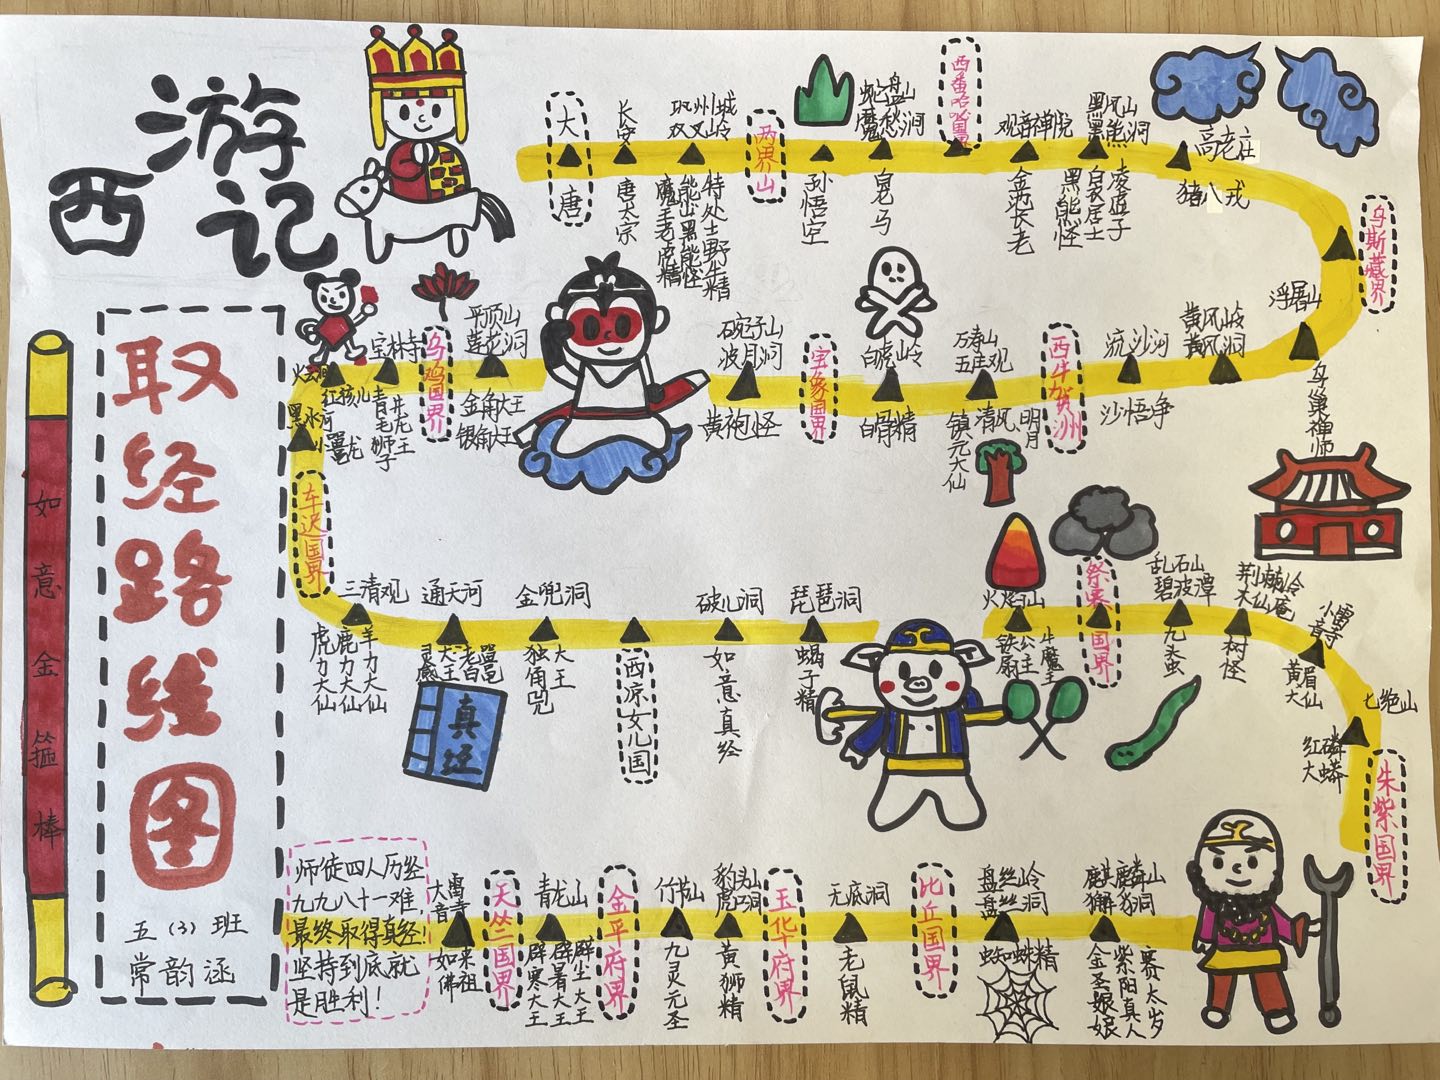 西游记
取经路线图
五（3）班
常韵涵
如意金箍棒
大唐
长安
唐太宗
巩州城
双叉岭
特处士野牛精
熊山君黑熊怪
魔王老虎精
两界山
孙悟空
蛇盘山
鹰愁涧
白龙马
西番哈咇国界
观音禅院
金池长老
黑风山
黑熊洞
凌虚子
白衣居士
黑熊怪
高老庄
猪八戒
乌斯藏界
浮屠山
乌巢禅师
黄风岭
黄风洞
流沙河
沙悟净
西牛贺洲
万寿山
五庄观
清风 明月
镇元大仙
白虎岭
白骨精
宝象国界
碗子山
波月洞
黄袍怪
平顶山
莲花洞
金角大王
银角大王
乌鸡国界
宝林寺
井龙王
青毛狮子
火云洞
红孩儿
黑水河
小鼍龙
车迟国界
三清观
虎力大仙
鹿力大仙
羊力大仙
通天河
灵感大王
老鼋
真经
金兜洞
独角兕大王
西凉女儿国
破儿洞
如意真经
琵琶洞
蝎子精
火焰山
铁扇公主
牛魔王
祭赛国界
乱石山
碧波潭
九头虫
荆棘岭
木仙庵
树怪
小雷音寺
黄眉大仙
七绝山
红磷大蟒
朱紫国界
麒麟山
獬豸洞
赛太岁
紫阳真人
金圣娘娘
盘丝岭
盘丝洞
蜘蛛精
比丘国界
无底洞
老鼠精
玉华府界
豹头山
虎口洞
黄狮精
竹节山
九灵元圣
金平府界
青龙山
辟寒大王
辟暑大王
辟尘大王
天竺国界
大雷音寺
如来佛祖
师徒四人历经
九九八十一难，
最终取得真经！
坚持到底就
是胜利！